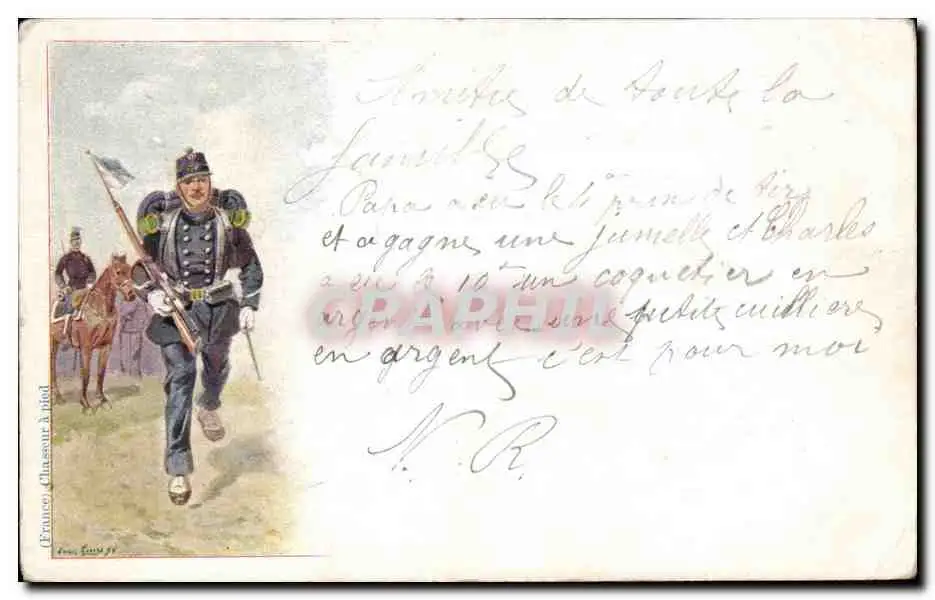 Amitié de toute la
famille
Papa a eu le 1er prix de tir
et a gagné une jumelle et Charles
a eu le 10e un coquetier en
argent avec une petite cuillière
en argent c'est pour moi
N. R.
CPAPHIL
(France) Chasseur à pied